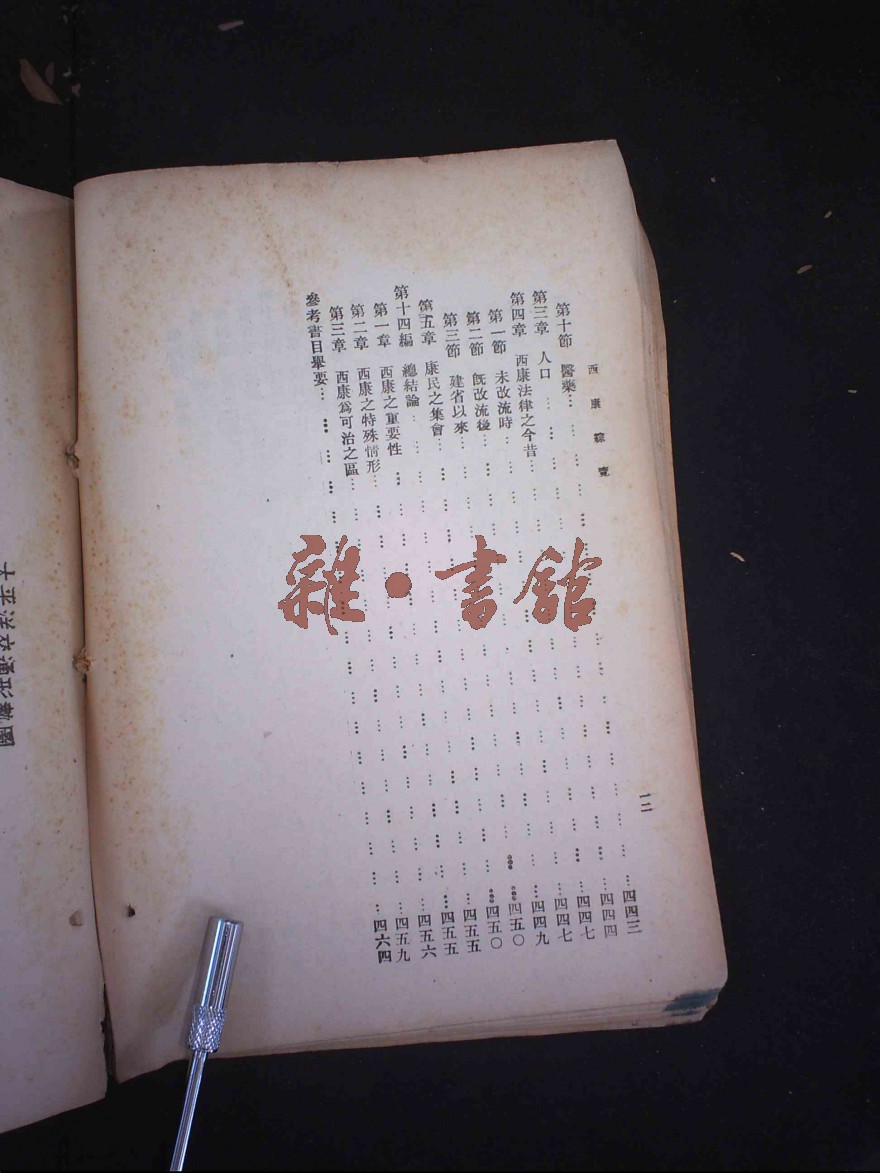 西康綜覽 一二
第十節 醫藥……四四三
第三章 人口……四四四
第四章 西康法律之今昔……四四七
第一節 未改流時……四四七
第二節 既改流後……四四九
第三節 建省以來……四五〇
第五章 康民之集會……四五〇
第十四編 總結論……四五五
第一章 西康之重要性……四五五
第二章 西康之特殊情形……四五六
第三章 西康爲可治之區……四五九
參考書目舉要……四六四
太平洋交通形勢圖
雜·書館